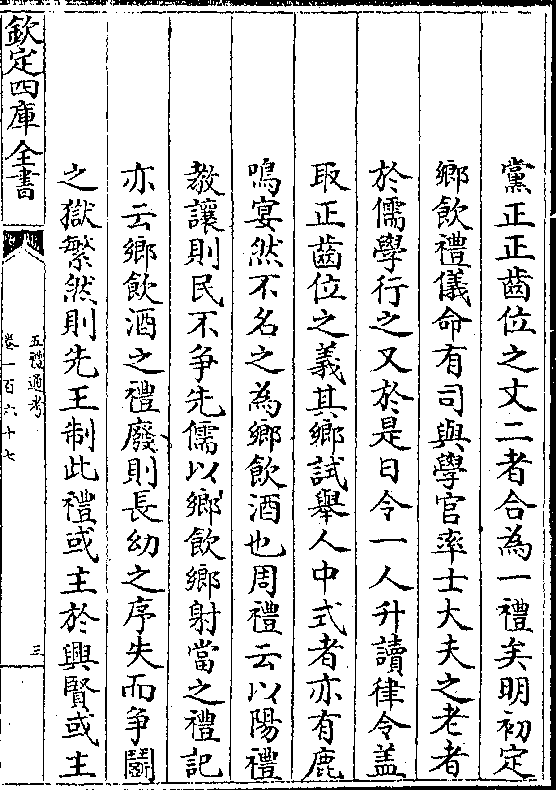 黨正正齒位之丈二者合為一禮矣明初定
鄉飲禮儀命有司與學官率士大夫之老者
於儒學行之又於是日令一人升讀律令盖
取正齒位之義其鄉試舉人中式者亦有鹿
鳴宴然不名之為鄉飲酒也周禮云以陽禮
教讓則民不争先儒以鄉飲鄉射當之禮記
亦云鄉飲酒之禮廢則長幼之序失而争鬭
之獄繁然則先王制此禮或主於興賢或主
欽定四庫全書
五禮通考
卷一百六十七
三